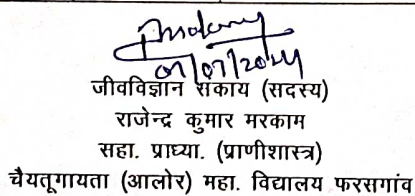 07/07/2024
जीवविज्ञान संकाय (सदस्य)
राजेन्द्र कुमार मरकाम
सहा. प्राध्या. (प्राणीशास्त्र)
चैयतूगायता (आलोर) महा. विद्यालय फरसगांव